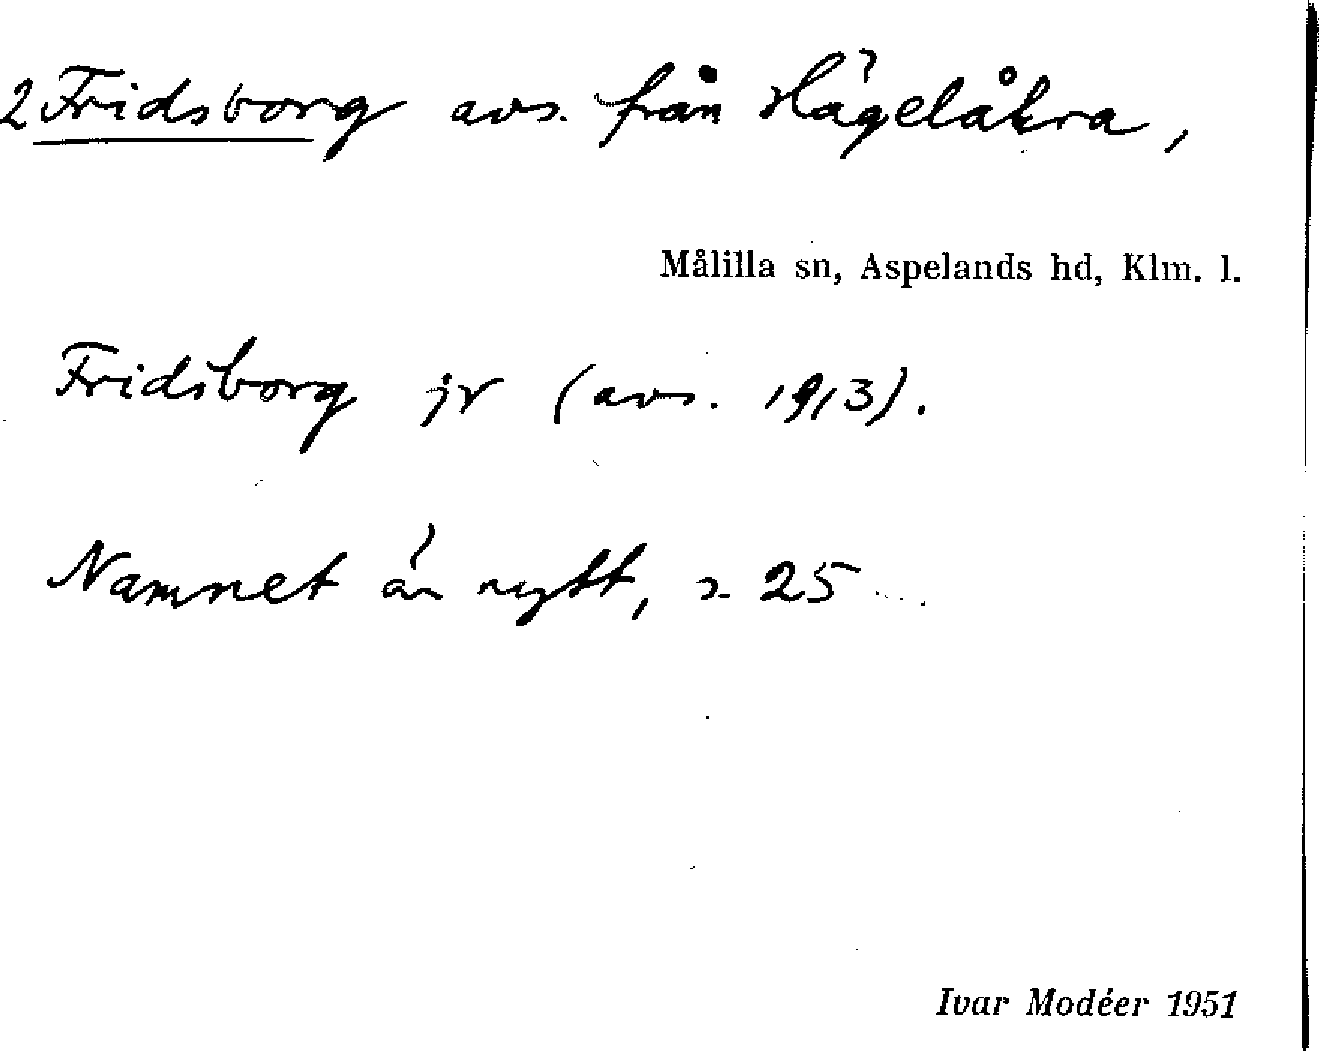 2 Fridsborg avs. från Hägelåkra,
Målilla sn, Aspelands hd, Klm. l.
Fridsborg jr (avs. 1913).
Namnet är nytt, 25
Ivar Modéer 1951